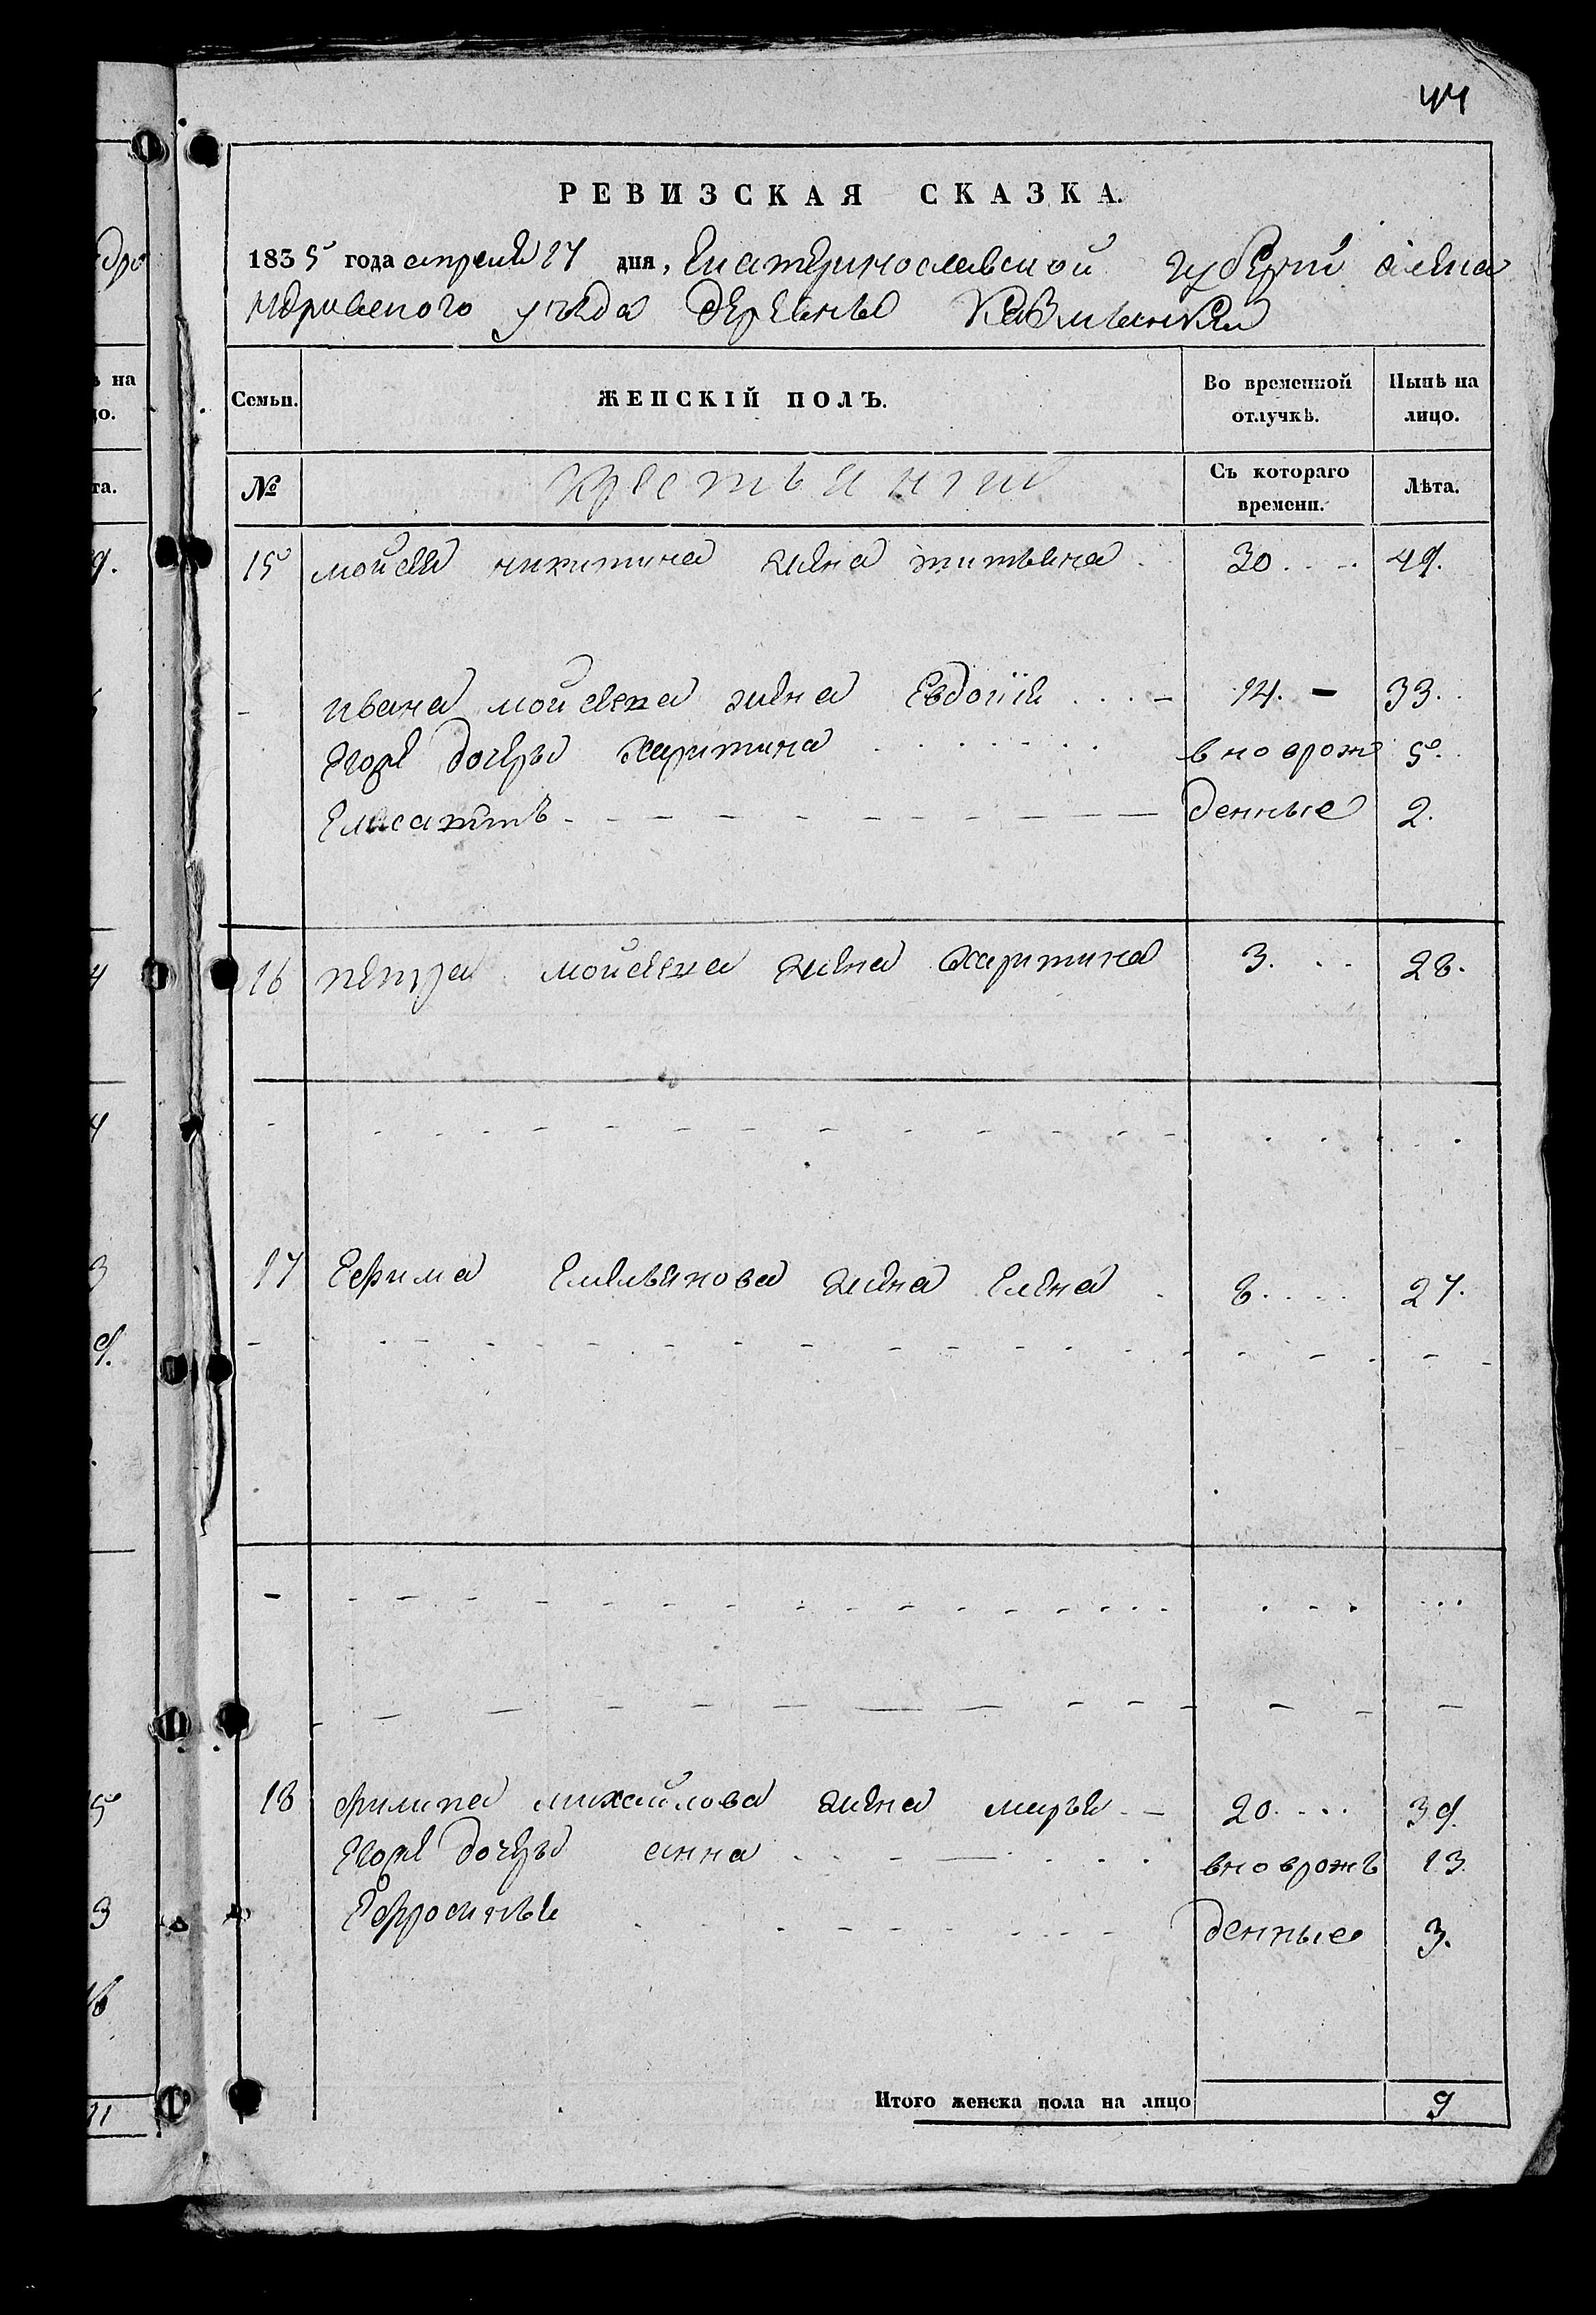 44
РЕВИЗСКАЯ СКАЗКА.
1835 года апреля 17 дня, Екатеринославской губернiй алекса
ндривского уезда деревнъи
Семьи.
ЖЕНСКІЙ ПОЛЪ.
Во временной отлучкѣ.
Нынѣ на лицо.
№
крестьянии
Съ котораго времени.
Лѣта.
15 мойсея никитина жена татьяна 30 49.
- ивана мойсеева жена Евдокiя 14. - 33.
Егоже дочеръи харитина вноврож 5.
Елисаветъ денные 2.
16 петра мойсеева жена харитина 3. 28.
17 Ефима Емельянова жена Елена 8. 27.
18 филипа михайлова жена маръя 20. 39.
Егоже дочеръи анна вноврожъ 13.
Ефросинья денные 3.
Итого женска пола на лицо 9